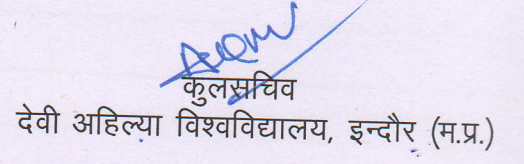 कुलसचिव
देवी अहिल्या विश्वविद्यालय, इन्दौर (म.प्र.)